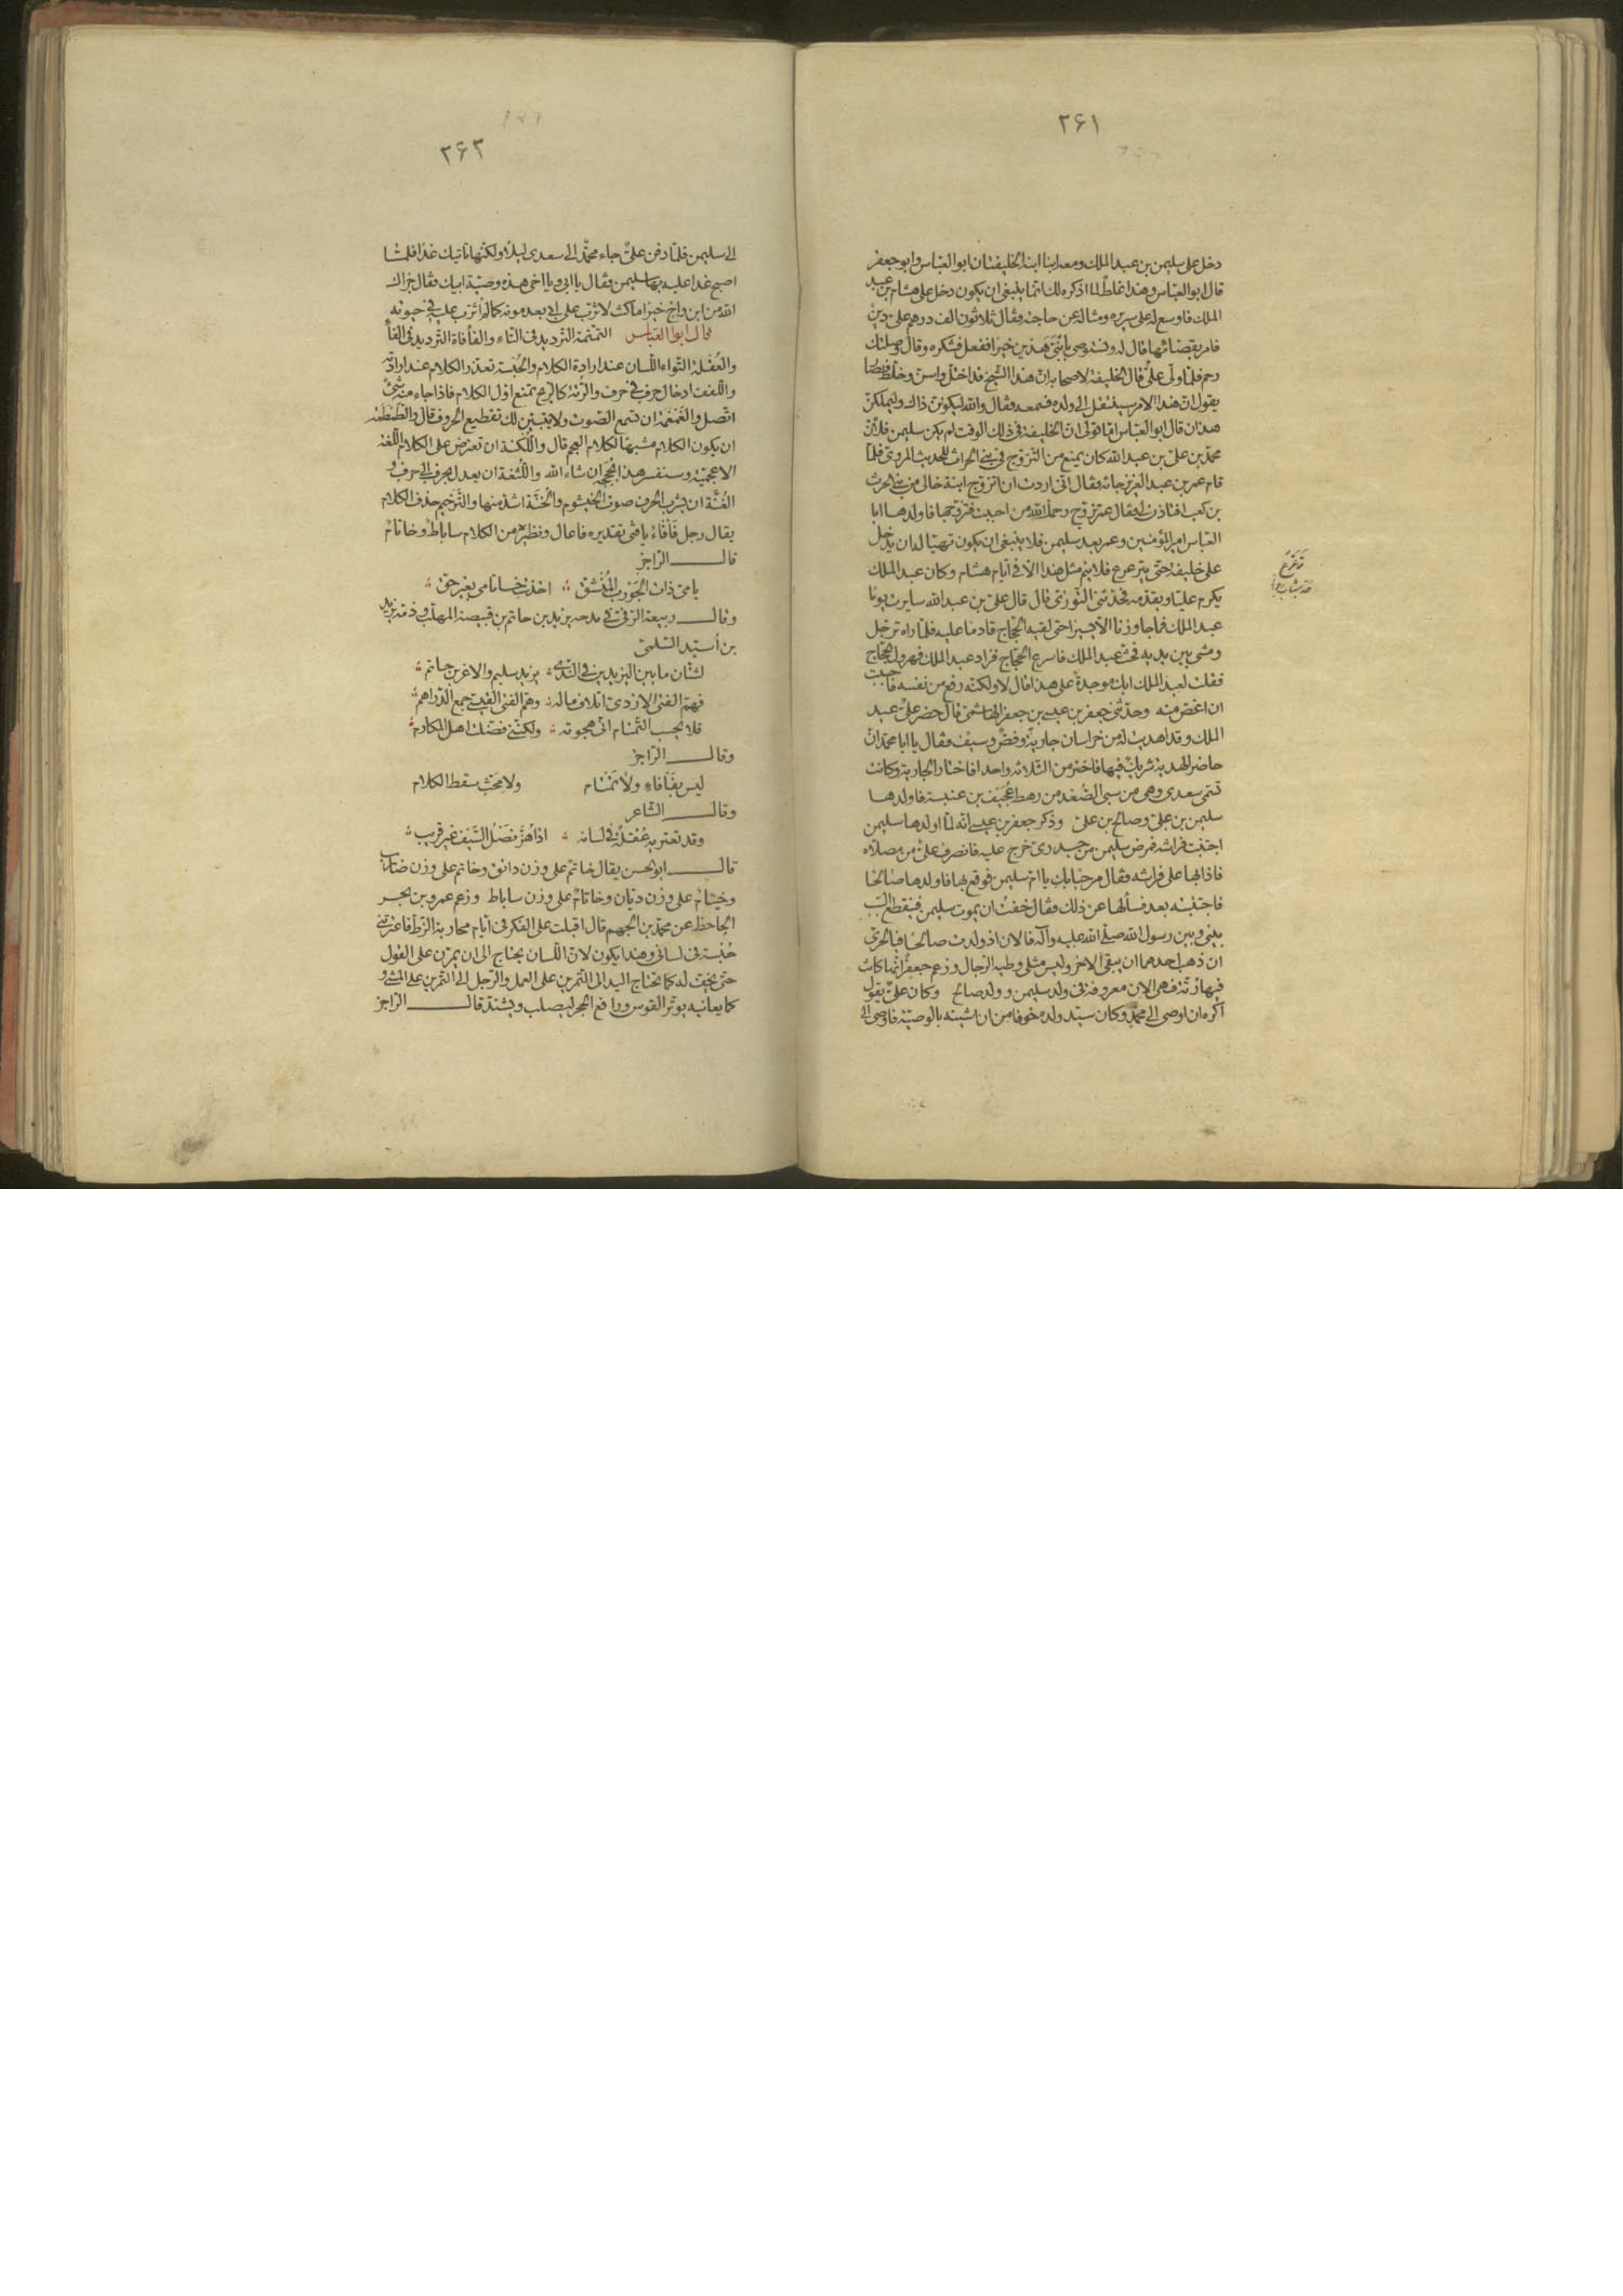 ٢۶١
دخل على سليمن بن عبد الملك ومعه ابنا ابنه الخليفتان ابو العباس وابو جعفر
قال ابو العباس وهذا غلط لما اذكره لك انما ينبغى ان يكون دخل على هشام بن عبد
الملك فاوسع له على سريره وساله عن حاجته فقال ثلاثون الف درهم علىّ دين
فامر بقضائها قال له وتستوصى بابنىّ هذين خيرا ففعل فشكره وقال وصلتك
رحم فلمّا ولّى علىّ قال الخليفة لاصحابه انّ هذا الشيخ قد اختلّ واسنّ وخلط فصار
يقول انّ هذا الامر سينتقل الى ولده فسمعه فقال والله ليكوننّ ذاك وليملكنّ
هذان قال ابو العباس امّا قولى انّ الخليفة فى ذلك الوقت لم يكن سليمن فلانّ
محمّد بن علىّ بن عبد الله كان يمنع من التزوّج فى بنى الحرث للحديث المروىّ فلمّا
قام عمر بن عبد العزيز جاءه فقال انّى اردت ان اتزوّج ابنة خالى من بنى الحرث
بن كعب افتاذن لى فقال عمر تزوّج رحمك الله من احببت فتزوّجها فاولدها ابا
العباس امير المؤمنين وعمر بعد سليمن فلا ينبغى ان يكون تهيّا له ان يدخل
على خليفة حتّى يترعرع فلا يتم مثل هذا الاّ فى أيّام هشام وكان عبد الملك
يكرم عليّا ويقدّمه فحدّثنى التّوّزىّ قال قال علىّ بن عبد الله سايرت يوما
عبد الملك فما جاوزنا الاّ يسيرا حتى لقيه الحجّاج قادما عليه فلمّا راه ترجّل
ومشى بين يديه فحثّ عبد الملك فاسرع الحجّاج فزاد عبد الملك فهرول الحجّاج
فقلت لعبد الملك ابك موجدة على هذا قال لا ولكنّه رفع من نفسه فاحببت
ان اغضّ منه وحدّثنى جعفر بن عيسى بن جعفر الهاشمىّ قال حضر علىّ عبد
الملك وقد اهديت له من خراسان جارية وفصّ وسيف فقال يا ابا محمّد انّ
حاضر الهديّة شريك فيها فاختر من الثلاثة واحدا فاختار الجارية وكانت
تسمّى سعدى وهى من سبى الصّغد من رهط عُجَيف بن عنبسة فاولدها
سليمن بن علىّ وصالح بن علىّ وذكر جعفر بن عيسى انّه لمّا اولدها سليمن
اجتنبت فراشه فمرض سليمن من جدرىّ خرج عليه فانصرف علىّ من مصلاّه
فاذا بها على فراشه فقال مرحبا بك يا امّ سليمن فوقع بها فاولدها صالحا
فاجتنبته بعد فسألها عن ذلك فقال خفتُ ان يموت سليمن فينقطع السّبب
بينى وبين رسول الله صلّى الله عليه وآله فالان اذ ولدت صالحا فبالحرىّ
ان ذهب احدهما ان يبقى الاخر وليس مثلى وطيه الرّجال وزعم جعفر انّها كانت
فيها رُتّة فهى الان معروفة فى ولد سليمن وولد صالح وكان علىّ يقول
اكره ان اوصى الى محمّد وكان سيّد ولده خوفا من ان اشينه بالوصيّة فاوصى الى
٢۶٢
الى سليمن فلمّا دفن علىّ جاء محمّد الى سعدى ليلا ولكنّها تاتيك غدا فلمّا
اصبح غدا عليه بها سليمن فقال يا ابى ويا اخى هذه وصيّة ابيك فقال جزاك
الله من ابن واخ خيرا ما كنت لاثرّب على ابى بعد موته كما لم اثرّب عليه فى حيوته
قال ابو العباس التمتمة التّرديد فى التّاء والفأفاة التّرديد فى الفآء
والعُقلة التواء اللّسان عند ارادة الكلام والحُبسة تعذّر الكلام عند ارادته
واللّفف ادخال حرف فى حرف والرّتّة كالرّيح تمنع اوّل الكلام فاذا جاء منه شىء
اتّصل والغَمغَمة ان تسمع الصّوت ولا يتبيّن لك تقطيع الحروف قال والطَّمطَمة
ان يكون الكلام مشبها لكلام العجم قال واللُّكنة ان تعترض على الكلام اللّغة
الاعجميّة وسنفسّر هذا بحججه ان شاء الله واللّثغة ان يعدل بحرف الى حرف و
الغُنّة ان يشرب الحرف صوت الخيشوم والخُنّة اشدّ منها والتّرخيم حذف الكلام
يقال رجل فَأفَاءٌ يا فتى تقديره فاعال ونظيره من الكلام ساباطٌ وخاتامٌ
قال الرّاجز
يا مىّ ذات الجَورَب المُنشَقّ اخذت خاتامى بغير حقّ
وقال ربيعة الرّقىّ فى مدحه يزيد بن حاتم بن قبيصة المهلّب وذمّه يزيد
بن أُسَيد السّلمىّ
لشتّان ما بين اليزيدين فى النّدى يزيد سليم والاغرّ بن حاتم
فهمّ الفتى الازدىّ اتلاف ماله وهمّ الفتى القيسى جمع الدّراهم
فلا يحسب التّمتام انّى هجوته ولكنّنى فضّلت اهل المكارم
وقال الرّاجز
ليس بفَأفاءٍ ولا تَمتام ولا محثّ سقط الكلام
وقال الشاعر
وقد تعتريه عُقلةٌ فى لسانه اذا هُزّ نَصلُ السّيف غير قريب
قال ابو الحسن يقال خاتَم على وزن دانق وخاتم على وزن ضارب
وخيتام على وزن ديّان وخاتام على وزن ساباط وزعم عمرو بن بحر
الجاحظ عن محمّد بن الجهم قال اقبلت على الفكر فى ايّام محاربة الزّطّ فاعترتنى
حُبسة فى لسانى وهذا يكون لانّ اللّسان يحتاج الى ان يمرّن على القول
حتى يخفّ له كما تحتاج اليد الى التّمرين على العمل والرّجل الى التّمرين على المشى و
كما يعانيه موتّر القوس ورافع الحجر ليصلب ويشتدّ قال الرّاجز